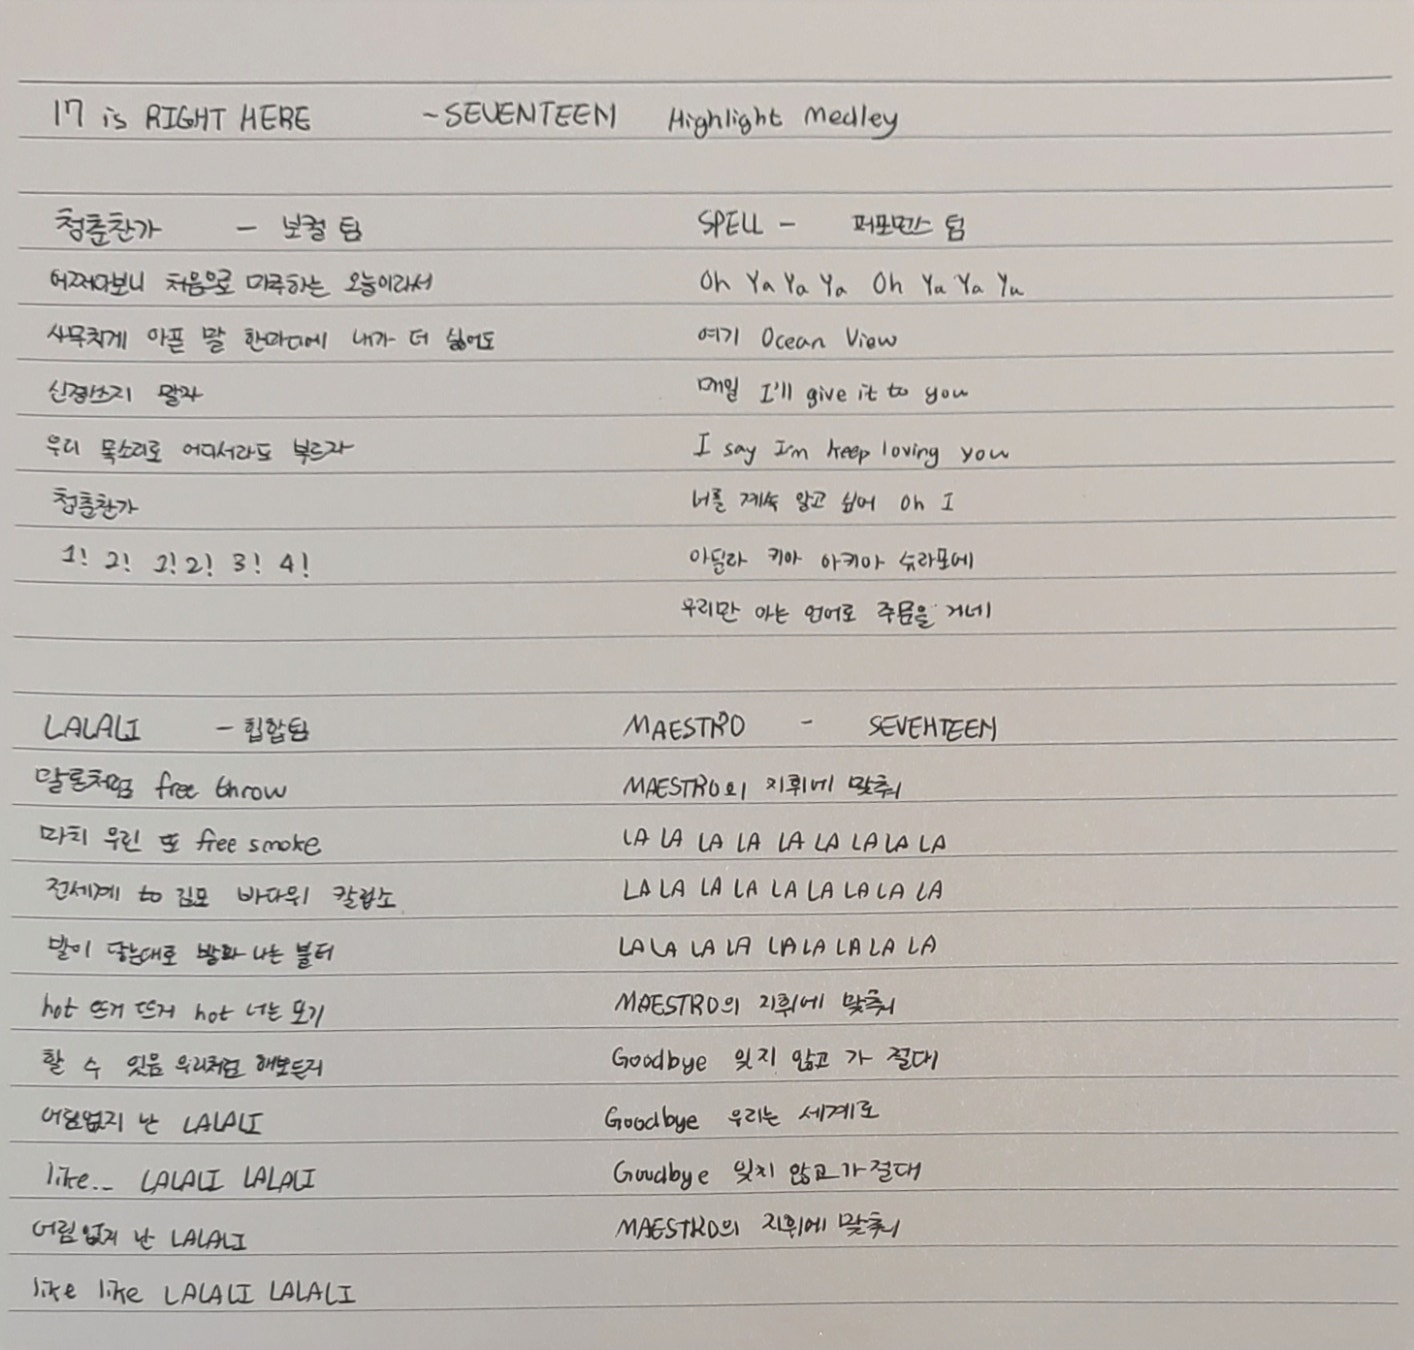 17 is RIGHT HERE ~SEVENTEEN Highlight Medley
청춘찬가 - 보컬 팀
어쩌다보니 처음으로 마주하는 오늘이라서
사무치게 아픈 말 한마디에 내가 더 싫어도
신경쓰지 말자
우리 목소리로 어디서라도 부르자
청춘찬가
1! 2! 1! 2! 3! 4!
SPELL - 퍼포먼스 팀
Oh Ya Ya Ya Oh Ya Ya Ya
여기 Ocean View
매일 I'll give it to you
I say I'm keep loving you
너를 계속 안고 싶어 Oh I
아딜라 키아 아키아 슈라포에
우리만 아는 언어로 주문을 거네
LALALI - 힙합팀
말론처럼 free throw
마치 우린 또 free smoke
전세계 to 김포 바다위 칼럽소
발이 닿는대로 방화 나는 불터
hot 뜨거 뜨거 hot 너는 포기
할 수 있음 우리처럼 해보든지
어림없지 난 LALALI
like... LALALI LALALI
어림없지 난 LALALI
like like LALALI LALALI
MAESTRO - SEVENTEEN
MAESTRO의 지휘에 맞춰
LA LA LA LA LA LA LA LA LA
LA LA LA LA LA LA LA LA LA
LA LA LA LA LA LA LA LA LA
MAESTRO의 지휘에 맞춰
Goodbye 잊지 않고 가 절대
Goodbye 우리는 세계로
Goodbye 잊지 않고 가 절대
MAESTRO의 지휘에 맞춰